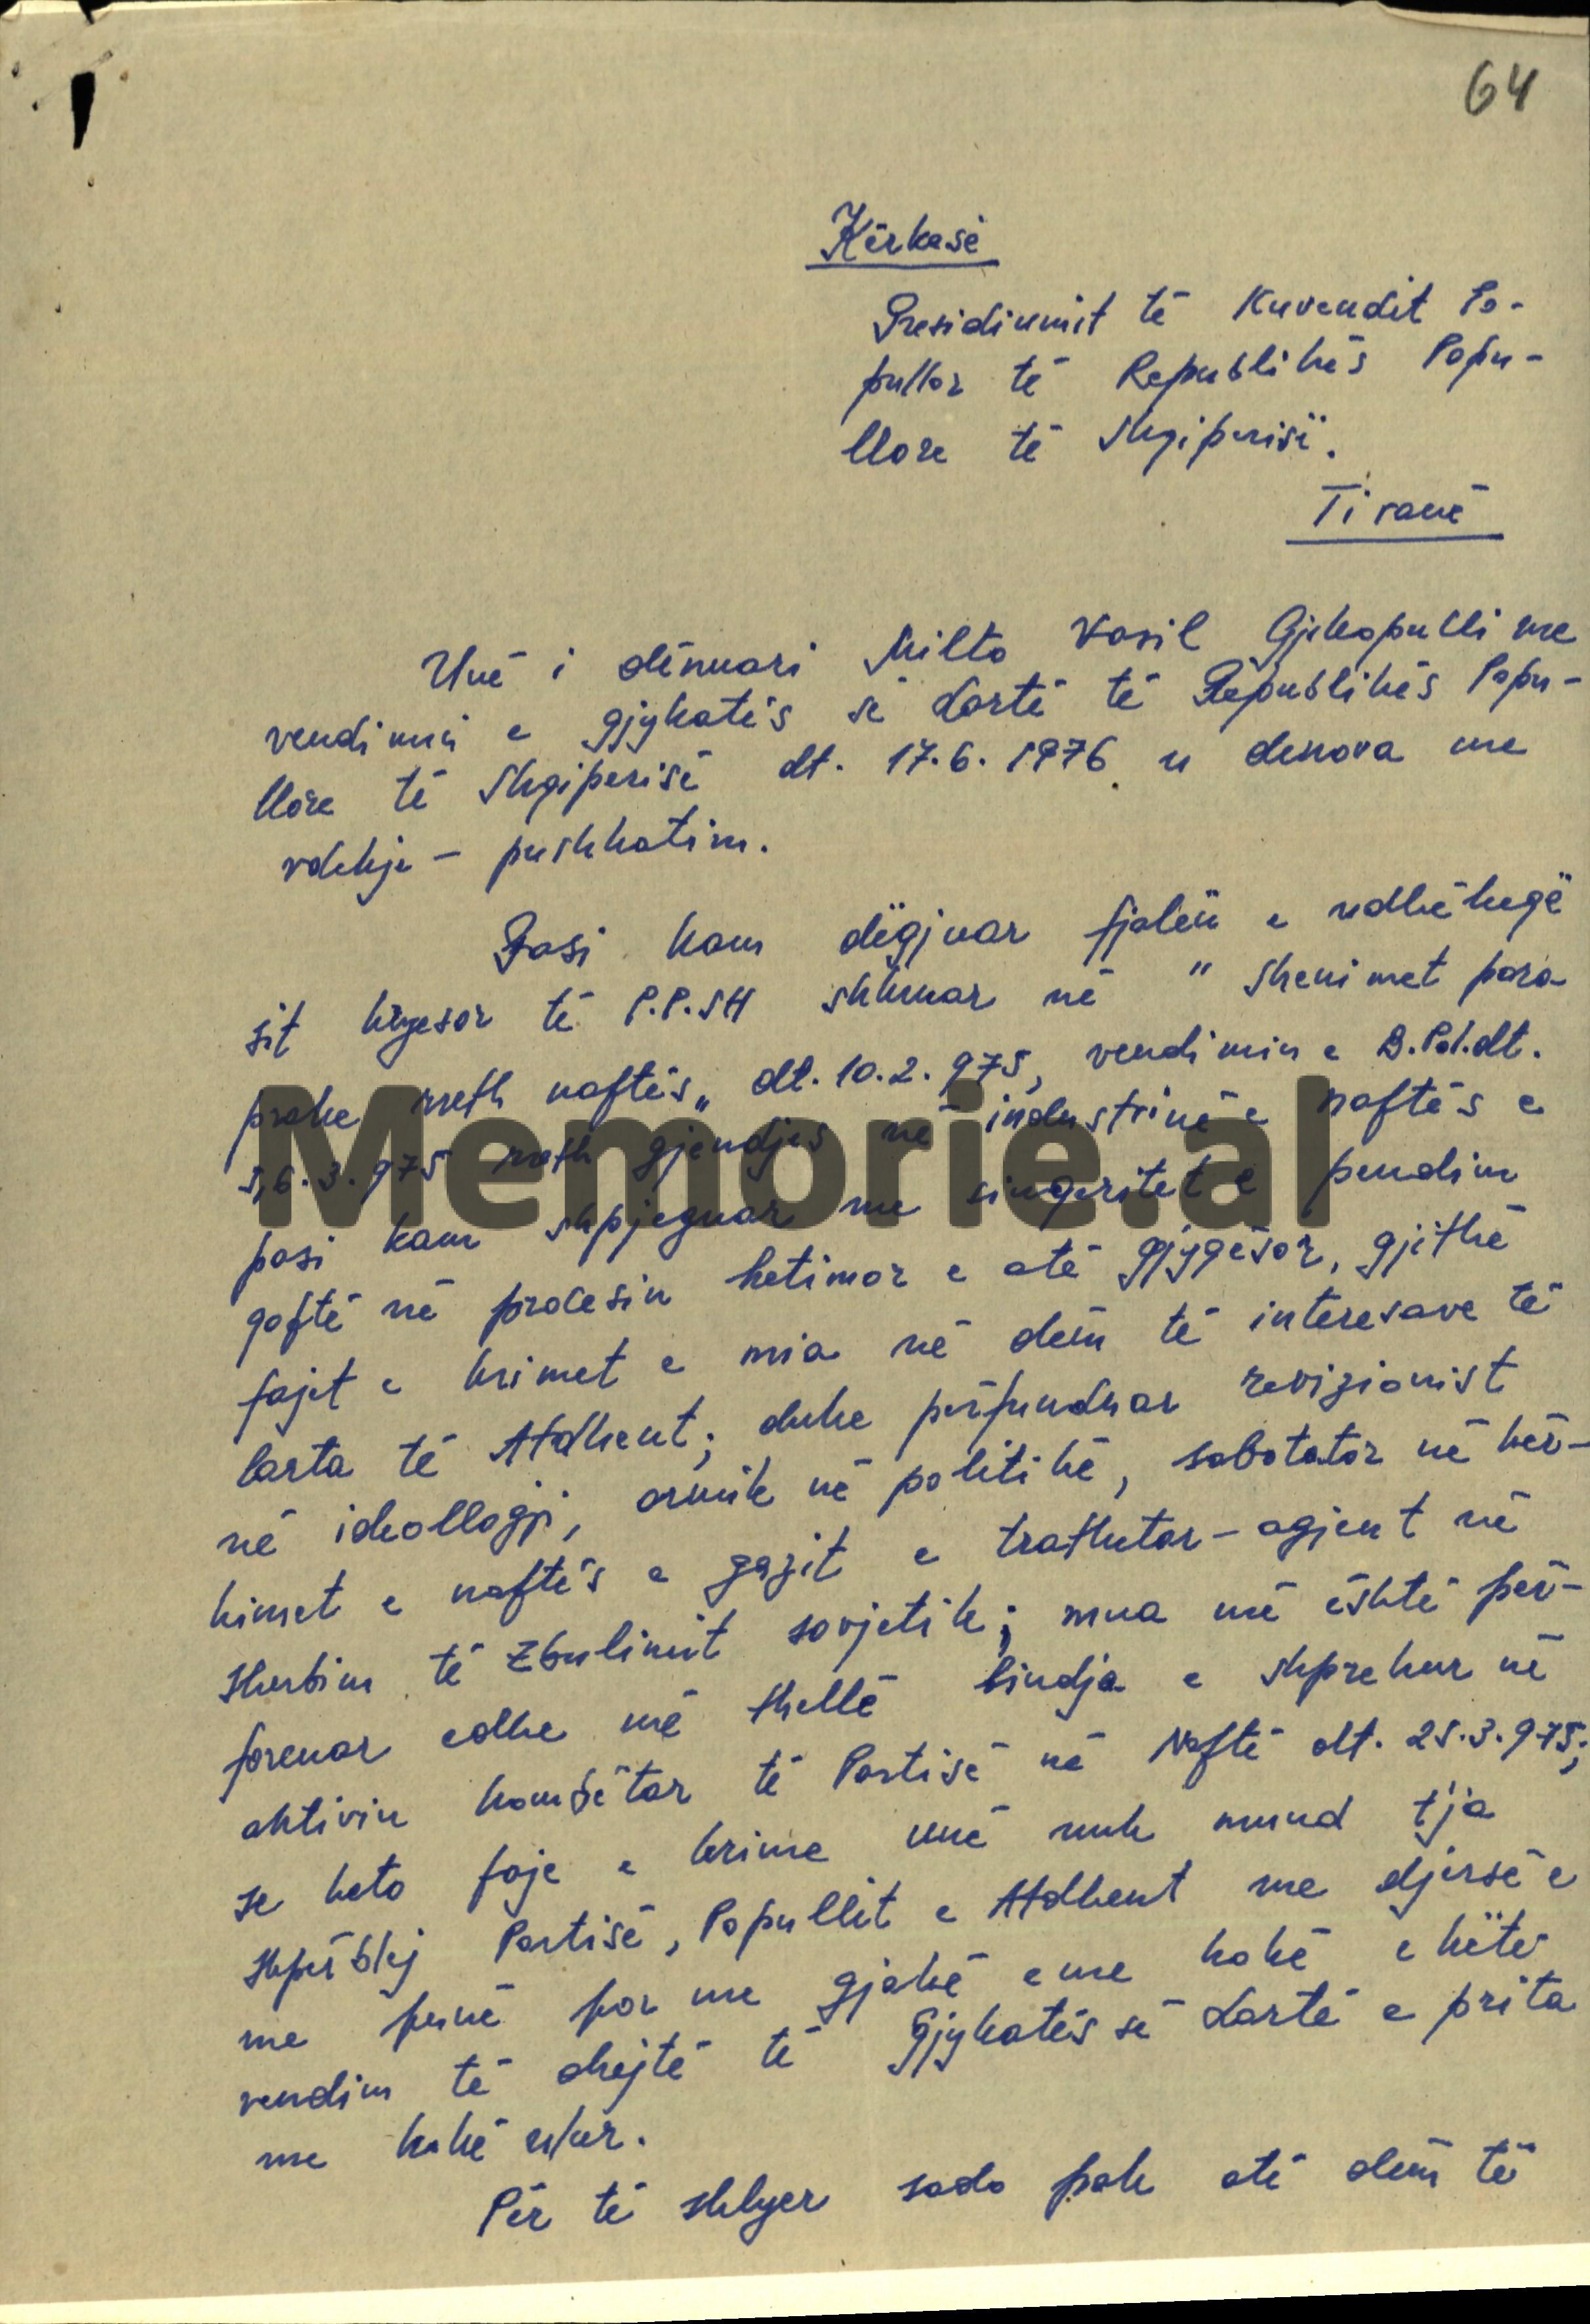 64
Kërkesë
Presidiumit të Kuvendit Po-
pullor të Republikës Popu-
llore të Shqiperisë.
Tiranë
Unë i dënuari Milto Vasil Gjikopulli me
vendimin e gjykatës së Lartë të Republikës Popu-
llore të Shqiperisë dt. 17.6.1976 u denova me
vdekje - pushkatim.
Pasi kam dëgjuar fjalën e udhëheqë
sit kryesor të P.P.SH shkruar në " Shenimet para-
prake rreth naftës„ dt. 10.2.975, vendimin e B.Pol.dt.
5,6.3.975 rreth gjendjes në industrinë e naftës e
pasi kam shpjeguar me singeritet e pendim
qoftë në procesin hetimor e atë gjyqësor, gjithë
fajet e krimet e mia në dëm të interesave të
larta të Atdheut; duke përfunduar revizionist
në ideollogji, armik në politikë, sabotator në kër-
kimet e naftës e gazit e trathtar - agjent në
sherbim të zbulimit sovjetik; mua më është për-
forcuar edhe më thellë bindja e shprehur në
aktivin kombëtar të Partisë në Naftë dt. 25.3.975;
se keto faje e krime unë nuk mund t'ja
shpërblej Partisë, Popullit e Atdheut me djersë e
me punë por me gjakë e me kokë e këtë
vendim të drejtë të Gjykatës së Lartë e prita
me kokë ulur.
Për të shlyer sado pak atë dëm të
Memorie.al